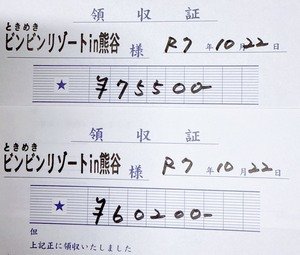 領収証
ときめき
ピンピンリゾートin熊谷 様 R7年10月22日
★ ¥75500-
領収証
ときめき
ピンピンリゾートin熊谷 様 R7年10月22日
★ ¥60200-
但
上記正に領収いたしました